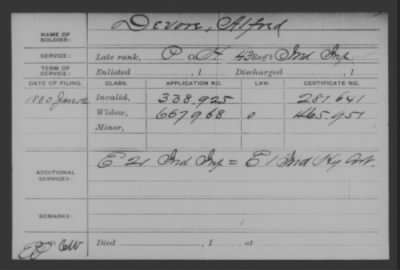 NAME OF SOLDIER: Devore, Alfred
SERVICE: Late rank, P Co. H, 43 Reg't Ind Inf.
TERM OF SERVICE: Enlisted , 1 Discharged , 1
DATE OF FILING. CLASS. APPLICATION NO. LAW. CERTIFICATE NO.
1880 Jan Invalid, 338.925 281641
Widow, 667968 465.951
Minor,
ADDITIONAL SERVICES: E 21 Ind Inf = E 1 Ind Hy Art.
REMARKS:
Died , 1 , at